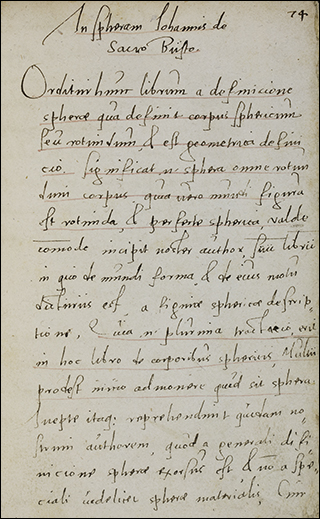 74
In spheram Iohannis de
Sacro Busto
Orditur hunc librum a definicione
spheræ qua definit corpus sphericum
seu rotundum, & est geometrica defini
cio. significat n. sphera omne rotun
dum corpus quia vero mundi figura
est rotunda, & perfecte spherica, valde
comode incipit noster author suu librũ
in quo de mundi forma, & de eius motu
daturus est, a figuræ sphericæ descrip
tione, Quia n. plurima tractacio, erit
in hoc libro de corporibus sphericis, Multũ
prodest inicio admonere quid sit sphera
Inepte itaq; reprehendunt quidam no
strum authorem, quod a generali difi
nicione spheræ exorsus est & nõ a spe
ciali videlicet spheræ materialis, Cum